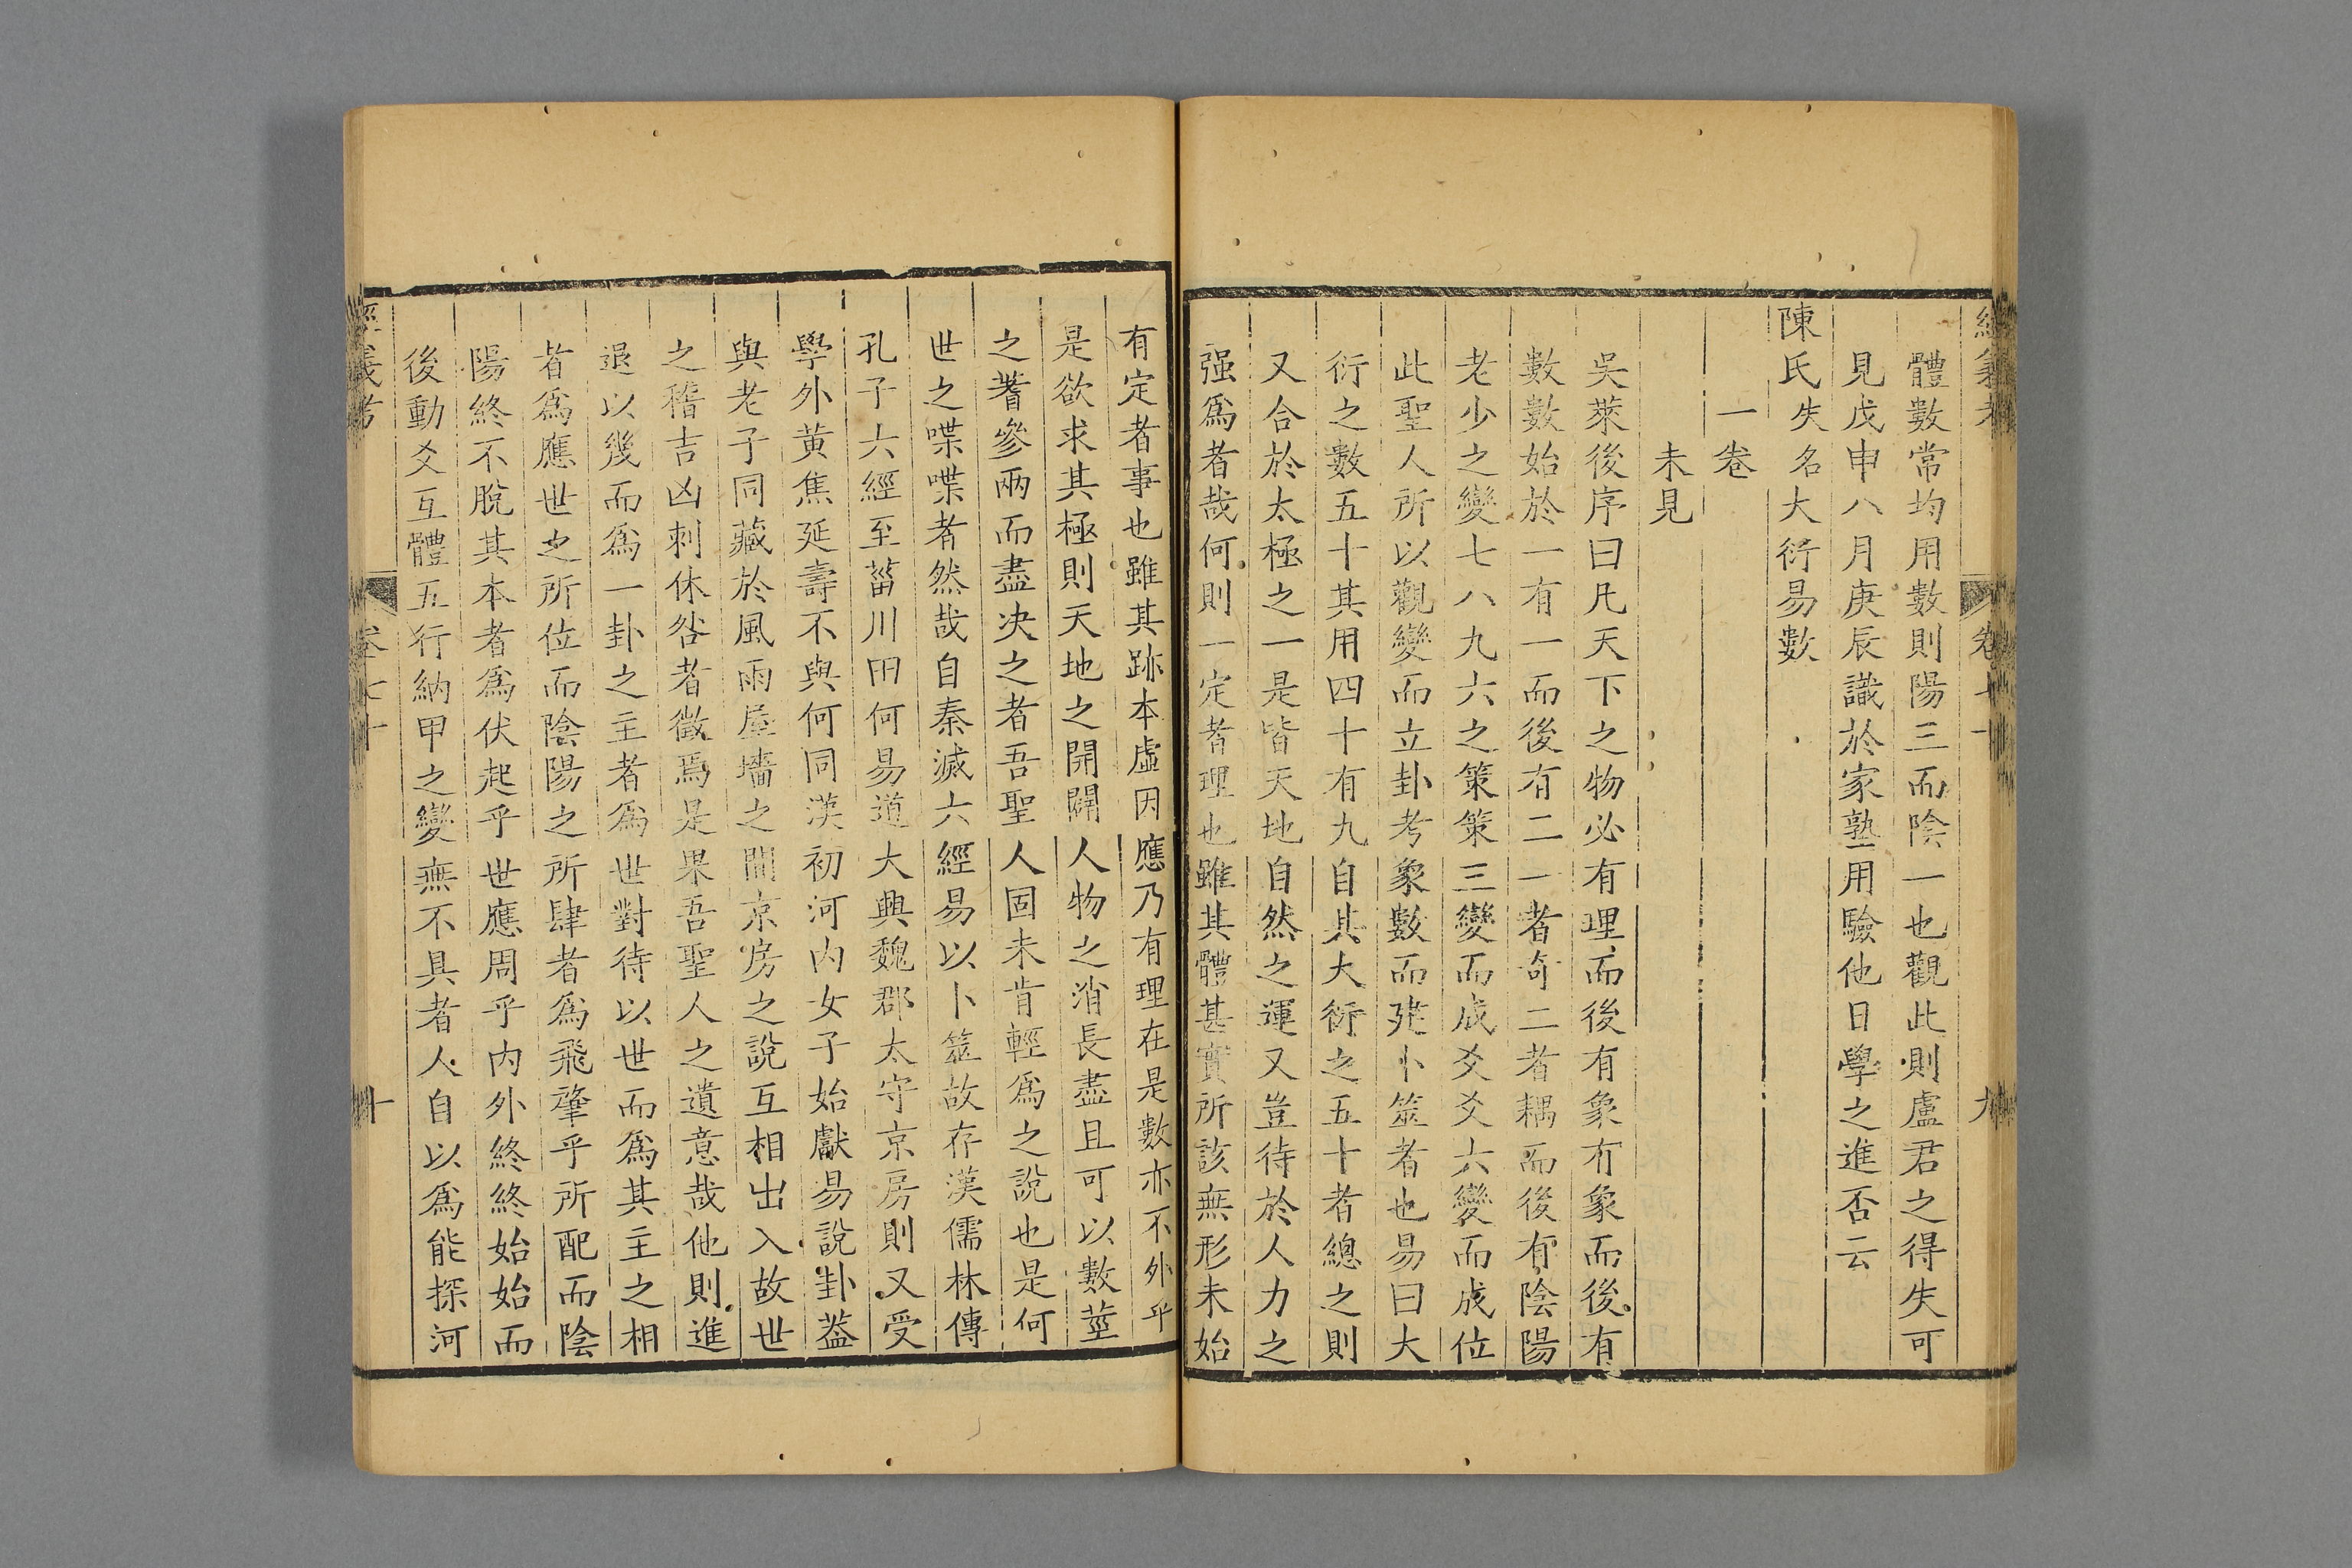 體數常均用數則陽三而陰一也觀此則盧君之得失可
見戊申八月庚辰識於家塾用驗他日學之進否云
陳氏失名大衍易數
一卷
未見
吳萊後序曰凡天下之物必有理而後有象有象而後有
數數始於一有一而後有二一者奇二者耦而後有陰陽
老少之變七八九六之策策三變而成爻爻六變而成位
此聖人所以觀變而立卦考象數而建卜筮者也易曰大
衍之數五十其用四十有九自其大衍之五十者總之則
又合於太極之一是皆天地自然之運又豈待於人力之
强爲者哉何則一定者理也雖其體甚實所該無形未始
有定者事也雖其跡本虛因應乃有理在是數亦不外乎
是欲求其極則天地之開闢人物之消長盡且可以數莖
之蓍參兩而盡決之者吾聖人固未肯輕爲之說也是何
世之喋喋者然哉自秦滅六經易以卜筮故存漢儒林傳
孔子六經至菑川田何易道大興魏郡太守京房則又受
學外黄焦延壽不與何同漢初河内女子始獻易說卦葢
與老子同藏於風雨屋墻之間京房之說互相出入故世
之稽吉凶刺休咎者徵焉是果吾聖人之遺意哉他則進
退以幾而爲一卦之主者爲世對待以世而爲其主之相
者爲應世之所位而陰陽之所肆者爲飛肇乎所配而陰
陽終不脫其本者爲伏起乎世應周乎内外終終始始而
後動爻互體五行納甲之變無不具者人自以爲能探河
經義考
卷七十
十